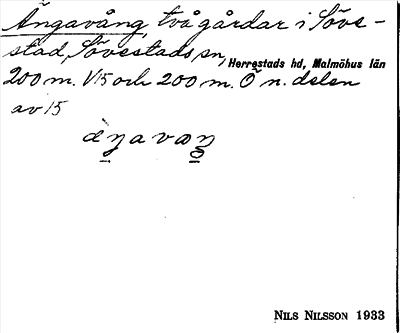 Ängavång, två gårdar i Söve-
stad, Sövestads, sn, Herrestads hd, Malmöhus län
200 m. V 15 och 200 m. Ö n. delen
av 15
Nils Nilsson 1933